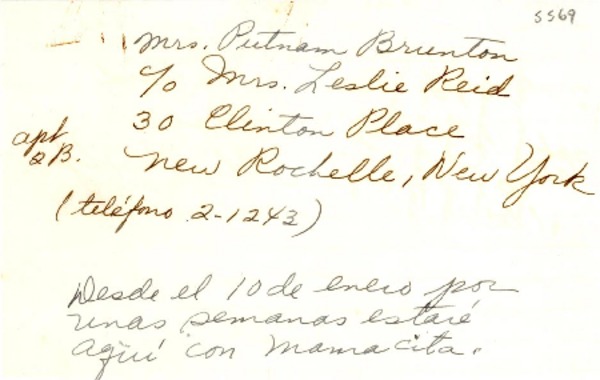 5569
Mrs. Putnam Brunton
c/o Mrs. Leslie Reid
30 Clinton Place
apt 2B.
New Rochelle, New York
(teléfono 2-1243)
Desde el 10 de enero por
unas semanas estaré
aquí con mamacita.